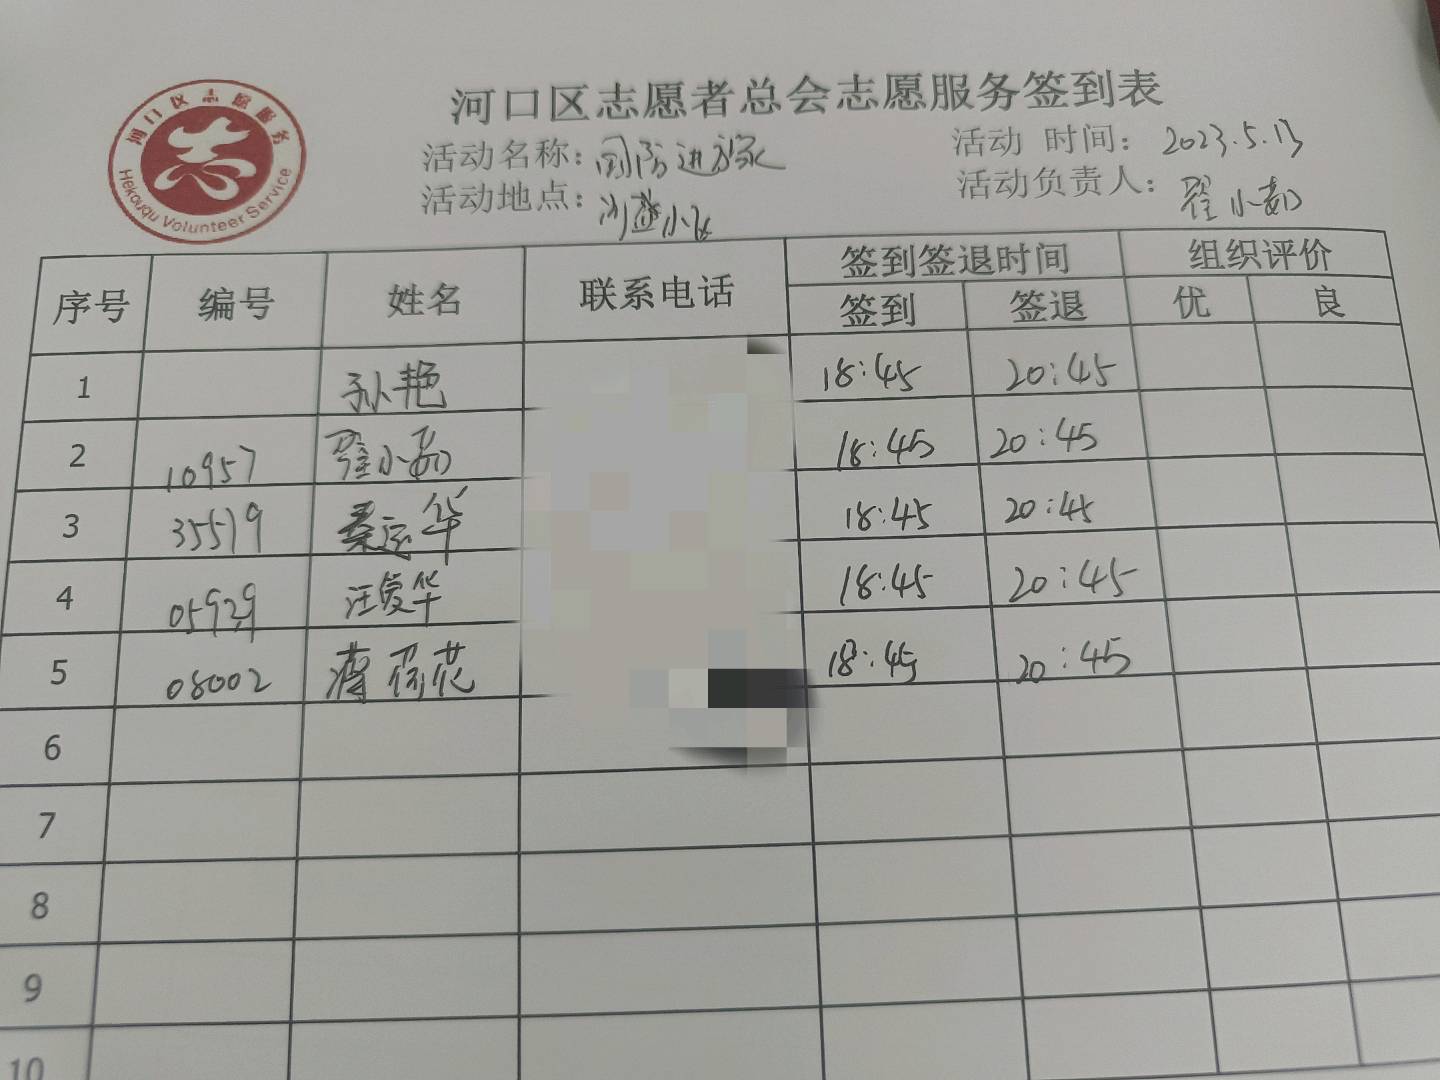 河口区志愿者总会志愿服务签到表
河口区志愿服务
Hekouqu Volunteer Service
活动名称：国防进万家
活动 时间： 2023.5.13
活动地点：小区
活动负责人：翟小茹
序号 编号 姓名 联系电话 签到签退时间 组织评价
签到 签退 优 良
1 孙艳 18:45 20:45
2 10957 翟小茹 18:45 20:45
3 35519 秦运华 18:45 20:45
4 05929 汪爱华 18:45 20:45
5 08002 薄荷花 18:45 20:45
6
7
8
9
10